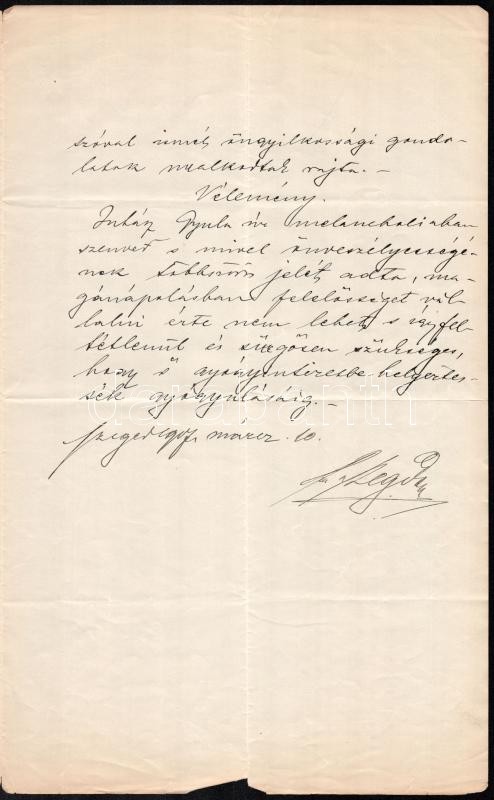 szóval ismét öngyilkossági gondo-
latok uralkodtak rajta. –
Vélemény.
Juhász Gyula úr melancholiaban
szenved s mivel önveszélyességé-
nek többszörös jelét adta, ma-
gánápolásban felelősséget vál-
lalni érte nem lehet s így fel-
tétlenül és sürgősen szükséges,
hogy ő gyógyintézetbe helyeztes-
sék gyógyulásáig. –
Szeged márcz. 10.